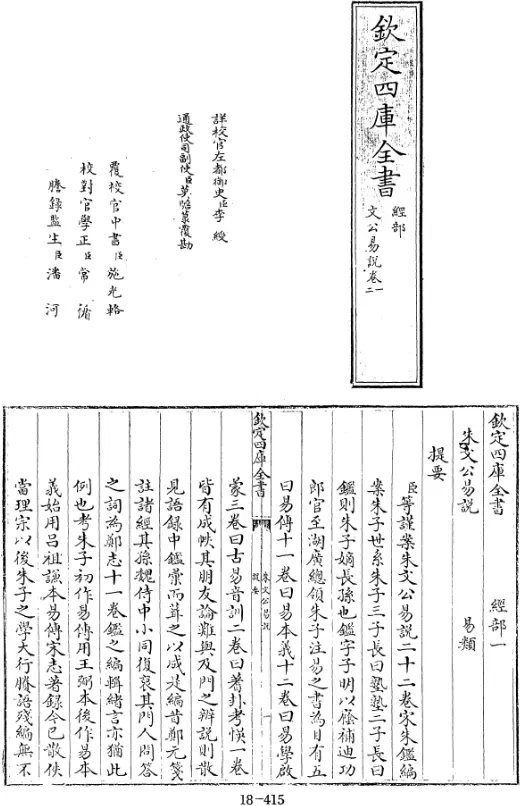 欽定四庫全書
經部
文公易說卷一
二
詳校官左都御史臣李綬
通政使司副使臣莫瞻菉覆勘
覆校官中書臣施光輅
校對官學正臣常循
謄錄監生臣潘河
欽定四庫全書 經部一
朱文公易說 易類
提要
臣等謹案朱文公易說二十二卷宋朱鑑編
案朱子世系朱子三子長曰塾塾二子長曰
鑑則朱子嫡長孫也鑑字子明以廕補迪功
郎官至湖廣總領朱子注易之書為目有五
曰易傳十一卷曰易本義十二卷曰易學啟
欽定四庫全書
朱文公易說
提要
蒙三卷曰古易音訓二卷曰蓍卦考悞一卷
皆有成帙其朋友論難與及門之辨說則散
見語錄中鑑彙而葺之以成是編昔鄭元箋
註諸經其孫魏侍中小同復裒其門人問答
之詞為鄭志十一卷鑑之編輯緒言亦猶此
例也考朱子初作易傳用王弼本後作易本
義始用呂祖謙本易傳宋志著錄今已散佚
當理宗以後朱子之學大行賸語殘編無不
18-415